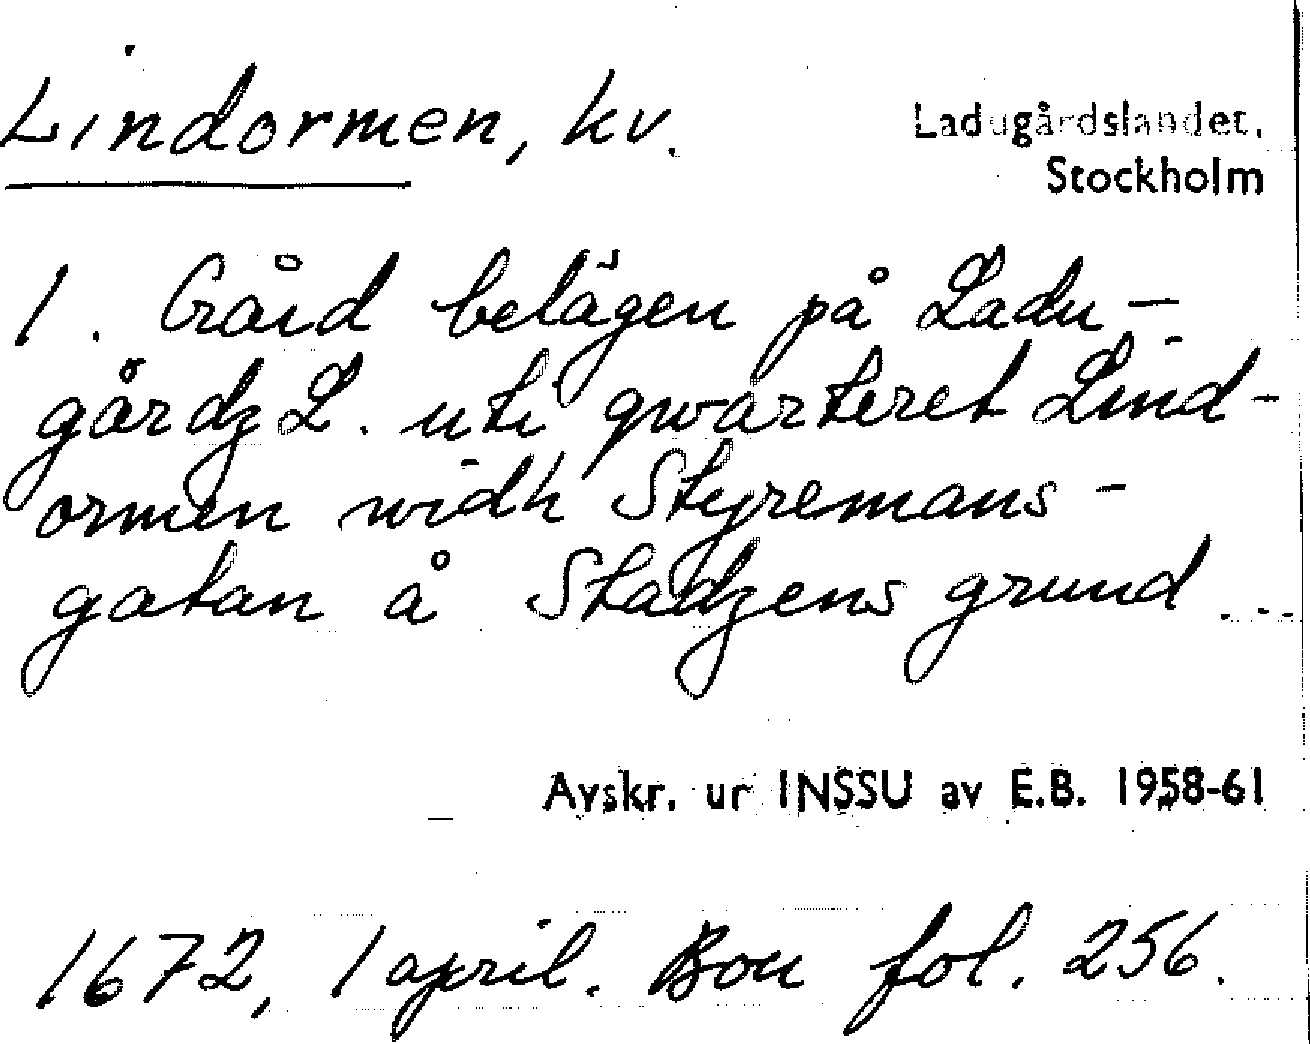 Lindormen, kv.
Ladugårdslandet.
Stockholm
1. Gård belägen på Ladu-
gårdz L. uti qwarteret Lind-
ormen widh Styremans-
gatan å Stadzens grund ...
Avskr. ur INSSU av E.B. 1958-61
1672, 1 april. Bou fol. 256.